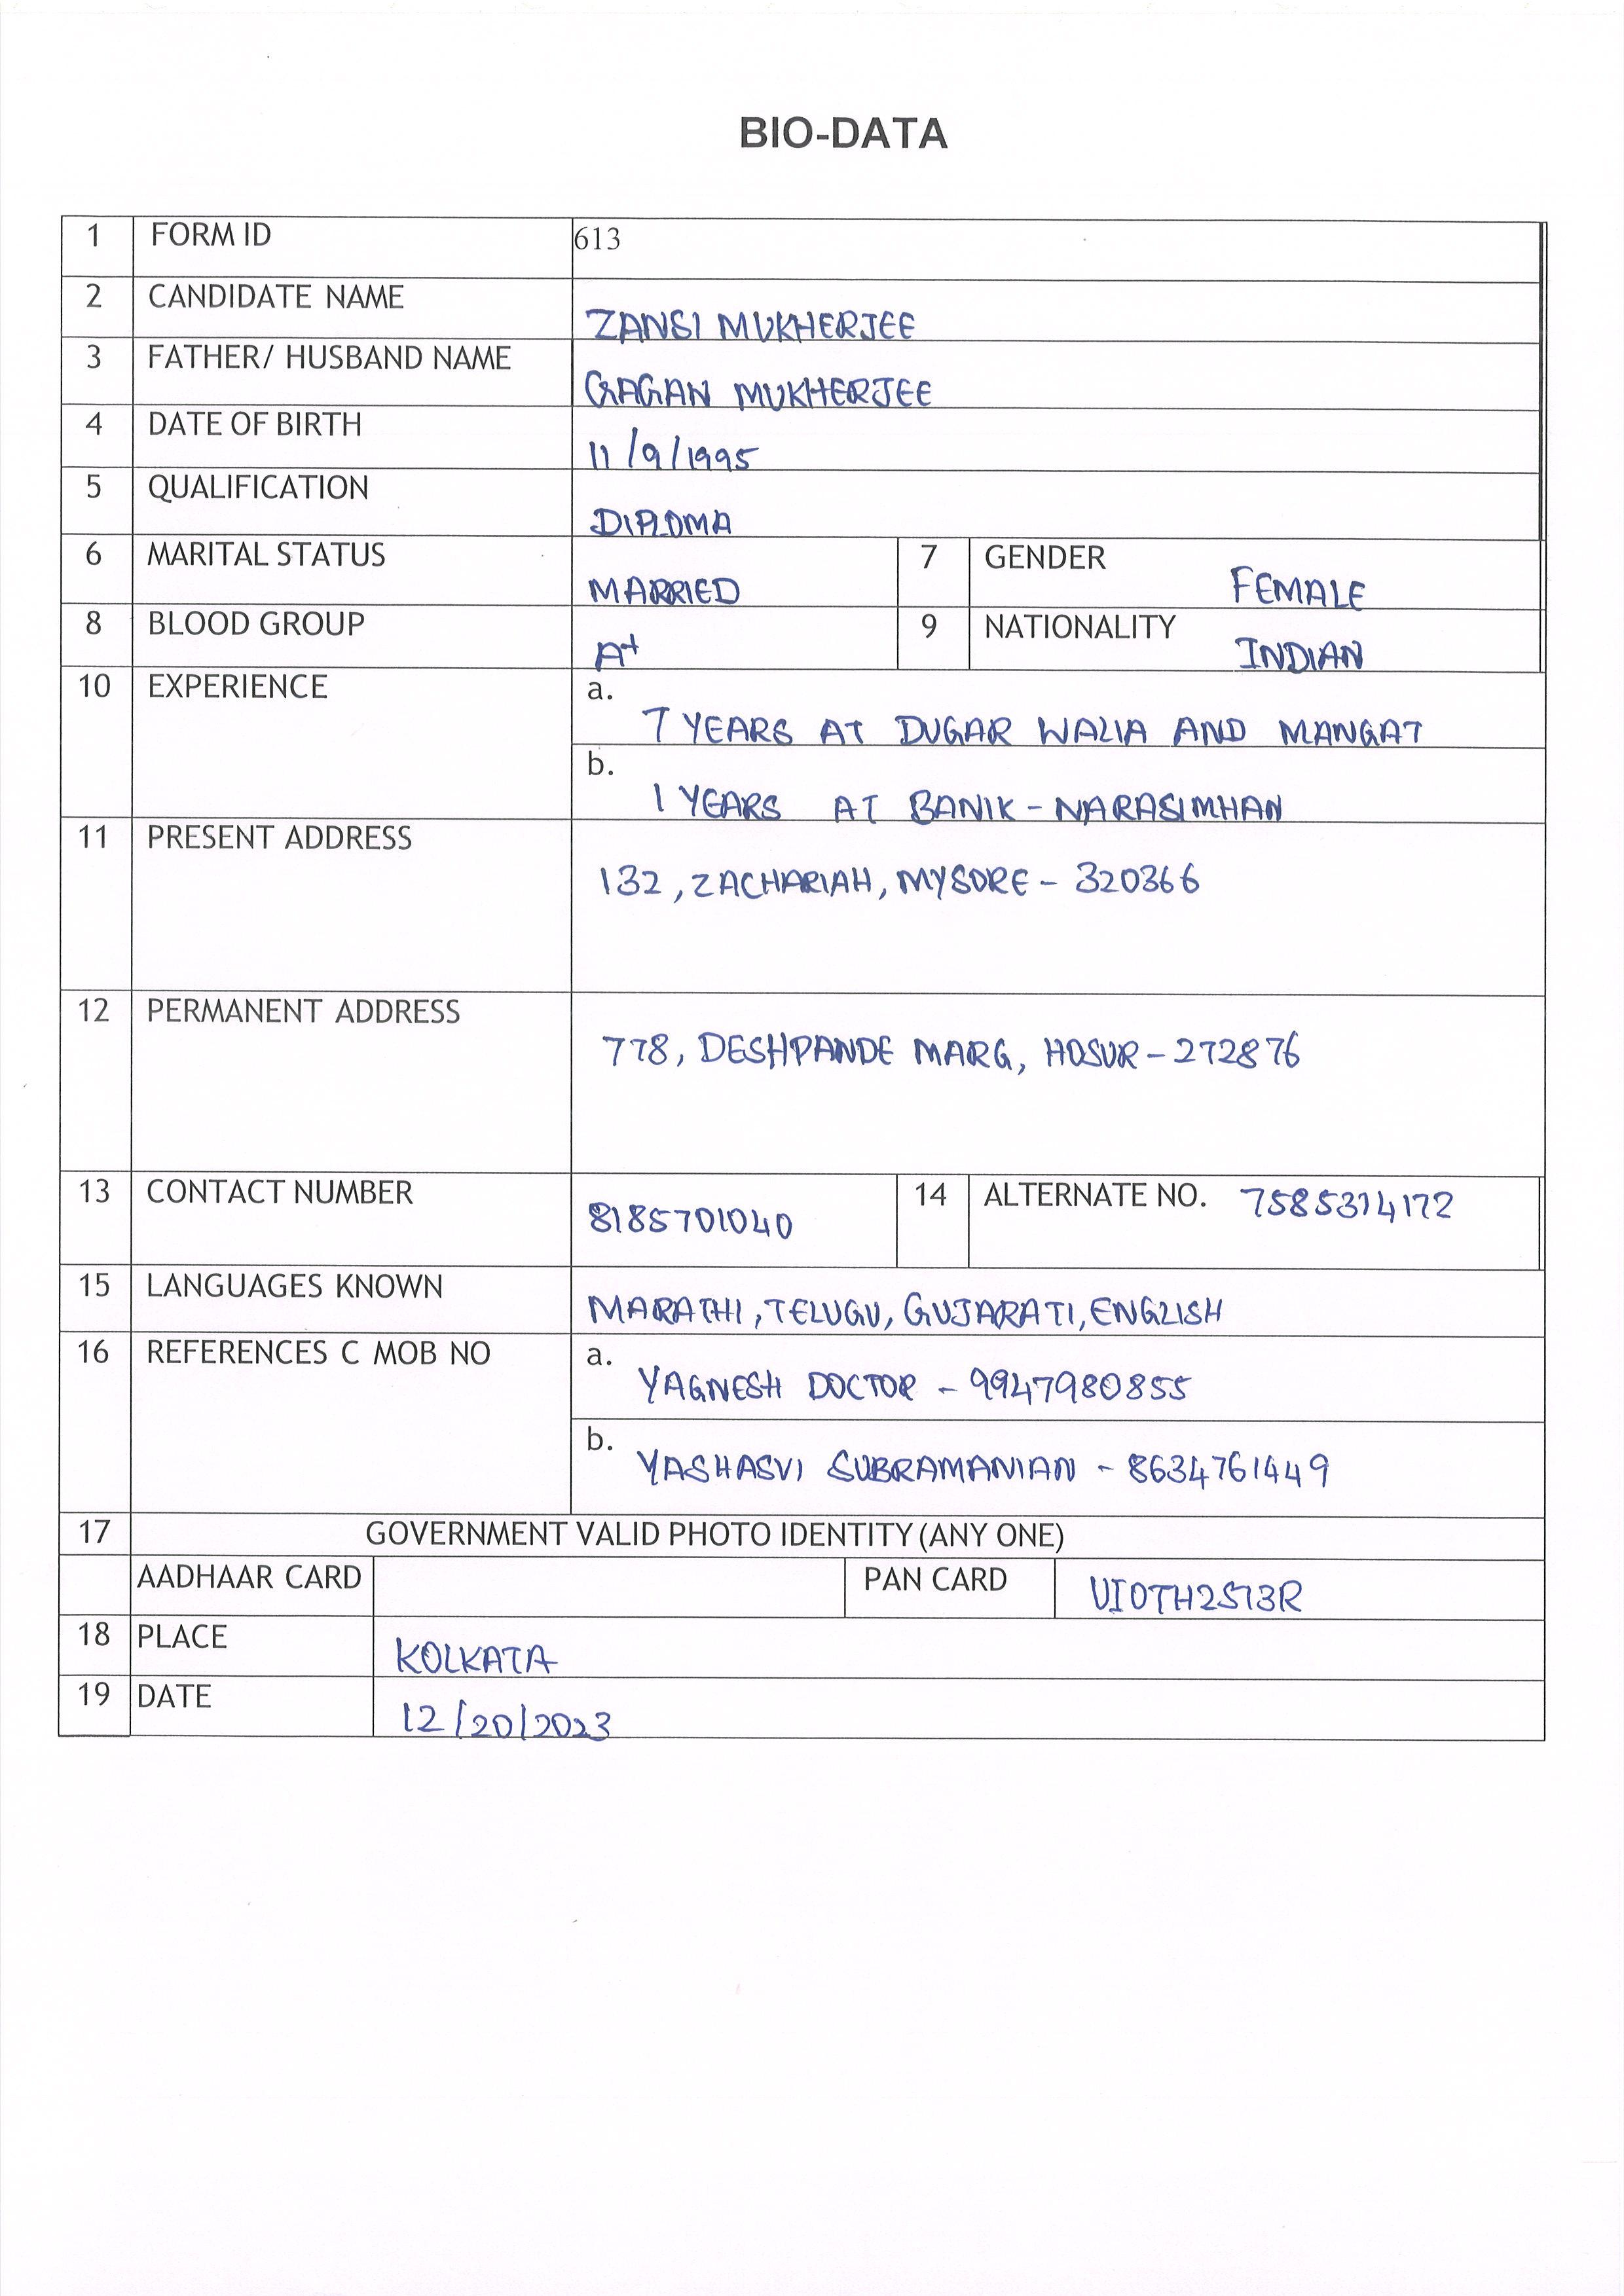 BIO-DATA
1 FORM ID 613
2 CANDIDATE NAME ZANSI MUKHERJEE
3 FATHER/ HUSBAND NAME GAGAN MUKHERJEE
4 DATE OF BIRTH 11/9/1995
5 QUALIFICATION DIPLOMA
6 MARITAL STATUS MARRIED 7 GENDER FEMALE
8 BLOOD GROUP A+ 9 NATIONALITY INDIAN
10 EXPERIENCE a. 7 YEARS AT DUGAR WALIA AND MANGAT
b. 1 YEARS AT BANIK - NARASIMHAN
11 PRESENT ADDRESS 132, ZACHARIAH, MYSORE - 320366
12 PERMANENT ADDRESS 778, DESHPANDE MARG, HOSUR - 272876
13 CONTACT NUMBER 8185701040 14 ALTERNATE NO. 7585374172
15 LANGUAGES KNOWN MARATHI, TELUGU, GUJARATI, ENGLISH
16 REFERENCES C MOB NO a. YAGNESH DOCTOR - 9947980855
b. YASHASVI SUBRAMANIAN - 8634761449
17 GOVERNMENT VALID PHOTO IDENTITY (ANY ONE)
AADHAAR CARD PAN CARD UIOTH2513R
18 PLACE KOLKATA
19 DATE 12/20/2023